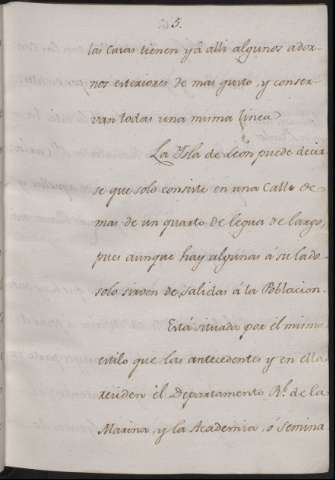 5.
las Casas tienen yá alli algunos ador-
nos exteriores de mas gusto, y conser-
van todas una misma Linea.
La Ysla de Leon puede decir
se que solo consiste en una Calle de
mas de un quarto de legua de largo,
pues aunque hay algunas á su lado
solo sirven de salidas á la Poblacion.
Está situada por el mismo
estilo que las antecedentes y en ella
residen el Departamento Rl. de la
Marina, y la Academia, ó Semina